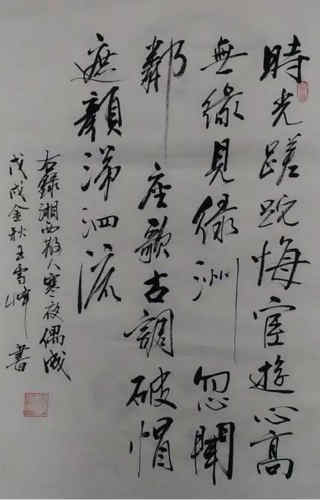 時光蹉跎悔宦游心高
無緣見綠洲忽聞
鄰座歌古調破帽
遮顏涕泗流
右錄湘西散人寒夜偶成
戊戌金秋王雪峰書